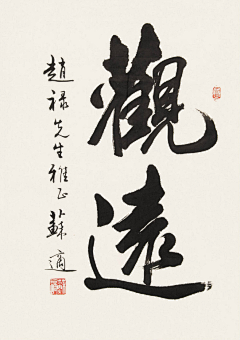 觀遠
趙禄先生雅正蘇適